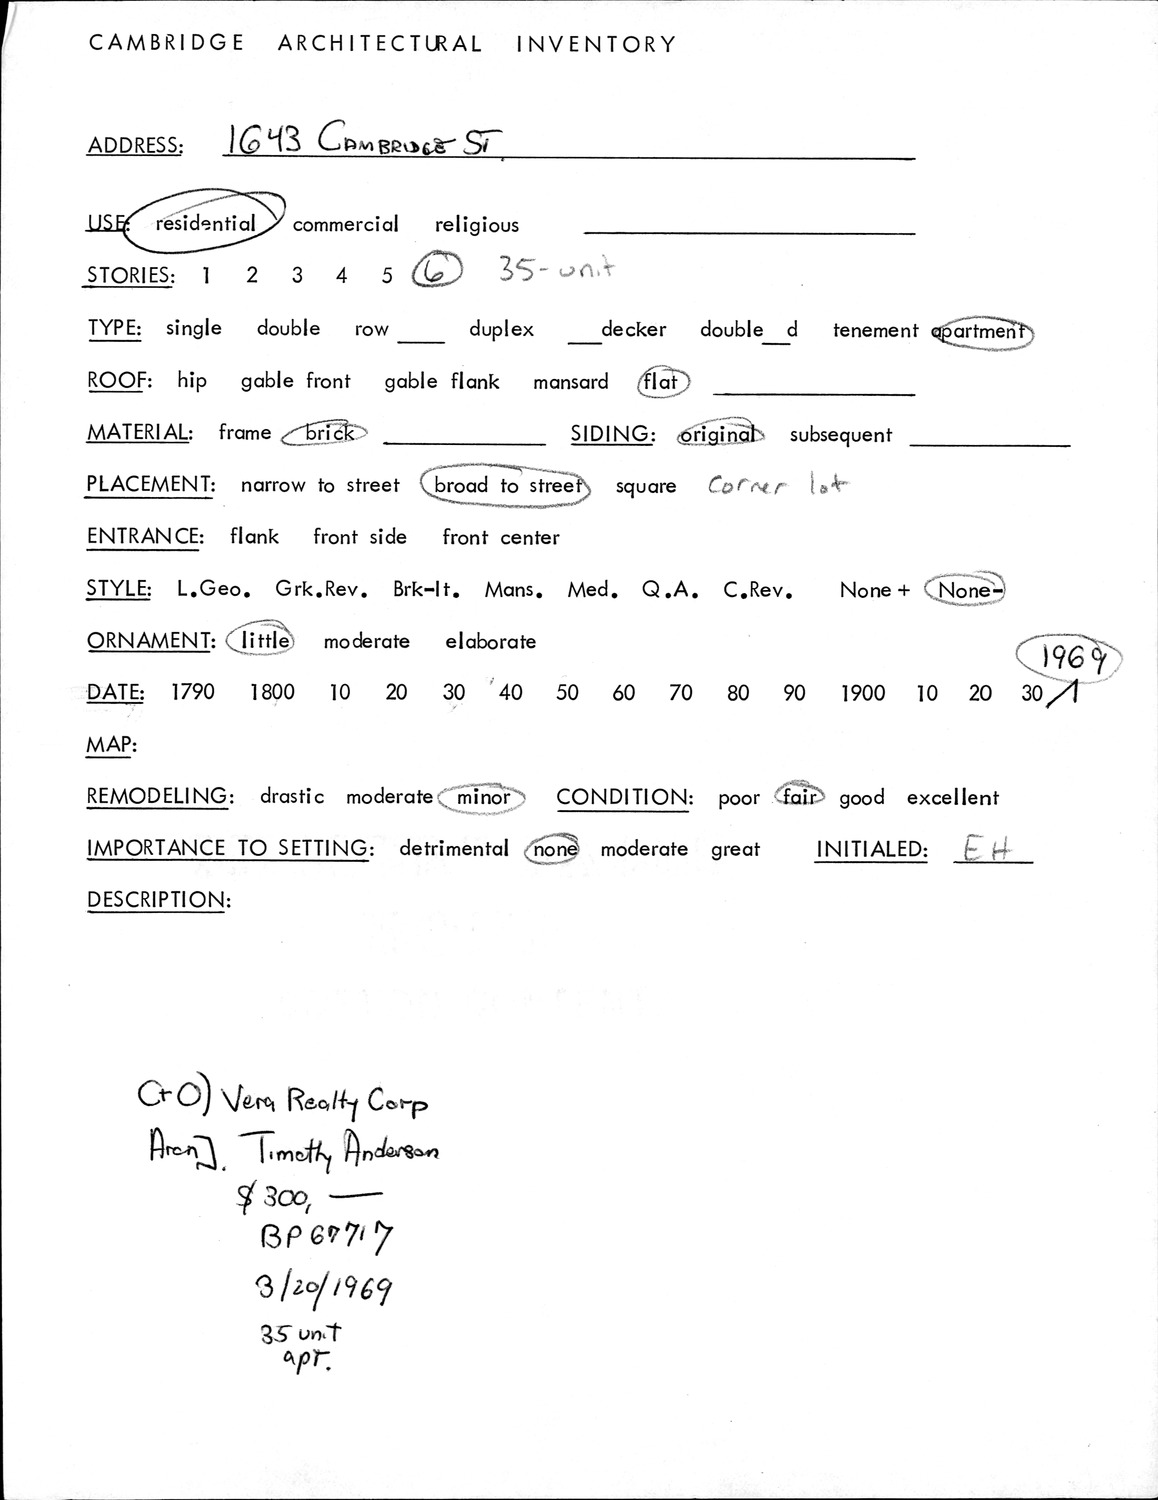 CAMBRIDGE ARCHITECTURAL INVENTORY
ADDRESS: 1643 CAMBRIDGE ST.
USE: residential commercial religious
STORIES: 1 2 3 4 5 6 35-unit
TYPE: single double row ___ duplex ___decker double__d tenement apartment
ROOF: hip gable front gable flank mansard flat
MATERIAL: frame brick SIDING: original subsequent
PLACEMENT: narrow to street broad to street square Corner lot
ENTRANCE: flank front side front center
STYLE: L.Geo. Grk.Rev. Brk-It. Mans. Med. Q.A. C.Rev. None + None-
ORNAMENT: little moderate elaborate
1969
DATE: 1790 1800 10 20 30 40 50 60 70 80 90 1900 10 20 30
MAP:
REMODELING: drastic moderate minor CONDITION: poor fair good excellent
IMPORTANCE TO SETTING: detrimental none moderate great INITIALED: EH
DESCRIPTION:
C+O) Vera Realty Corp
Timothy Anderson
$300, —
BP 67717
3/20/1969
35 unit
apt.